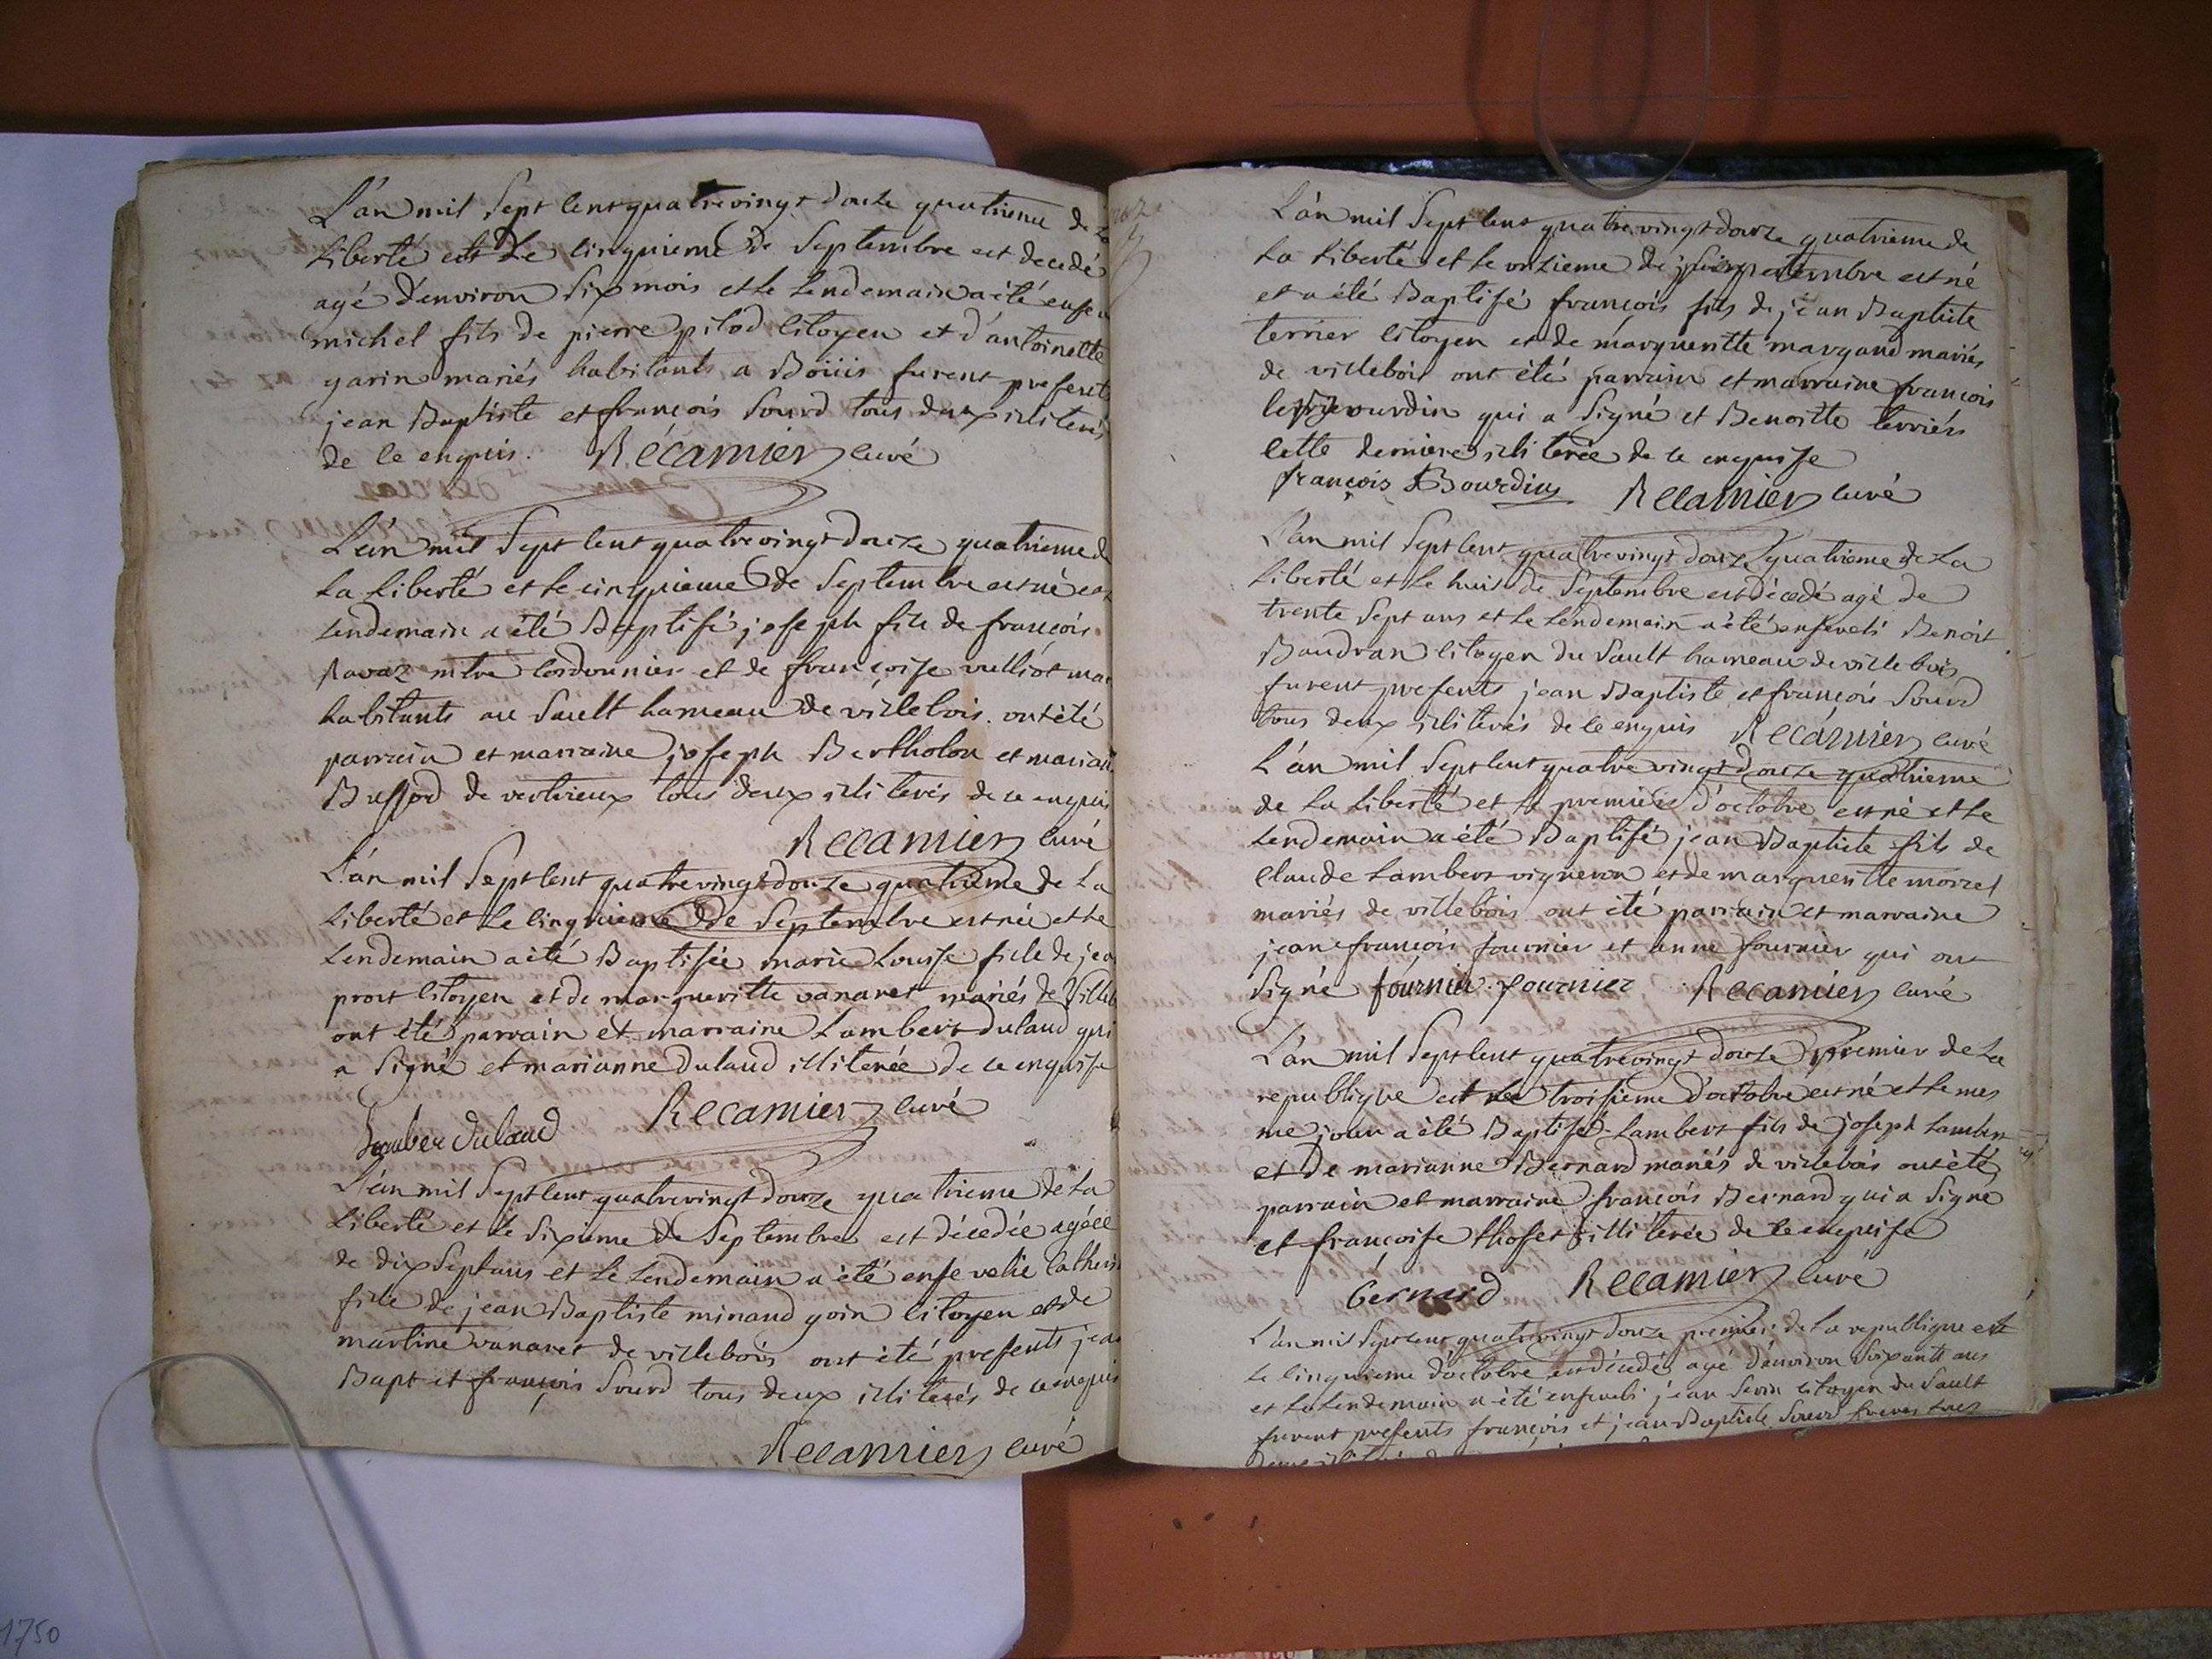 L'an mil Sept Cent quatre vingt douze quatrieme de La
Liberté et Le Cinquieme de Septembre est decedé
agé d'environ Six mois et le Lendemain a été ense
michel fils de pierre pilod Citoyen et d'antoinette
garin mariés habitants a Boüis furent present
jean Baptiste et françois Sourd tous deux illiterés
de ce enquis. Récamier Curé
L'an mil Sept Cent quatre vingt douze quatrieme de
La Liberté et le cinquieme de Septembre est né et
Lendemain a été Baptisé joseph fils de françois
Ravaz mtre Cordonnier et de françoise vulliot mar
habitants au Sault hameau de villebois. ont été
parrain et marraine joseph Bertholon et mariann
Buffod de vertrieux tous deux illiterés de ce enquis
Récamier Curé
L'an mil Sept Cent quatre vingt douze quatrieme de La
Liberté et Le Cinquieme de Septembre est née et le
Lendemain a été Baptisée marie Louise fille de jea
prost Citoyen et de margueritte vanaret mariés de Villeb
ont été parrain et marraine Lambert dulaud qui
a Signé et marianne dulaud illiterée de ce enquise
Lamber dulaud Récamier Curé
L'an mil Sept Cent quatre vingt douze quatrieme de La
Liberté et le Sixieme de Septembre est décedée agéee
de dix Sept ans et Le Lendemain a été ensevelie Catheri
fille de jean Baptiste minaud goin Citoyen et de
martine vanaret de villebois ont été presents jean
Bapt et françois Sourd tous deux illiterés de ce enquis
Récamier Curé
L'an mil Sept Cent quatre vingt douze quatrieme de
La Liberté et le onzieme de Septembre est né
et a été Baptisé françois fils de jean Baptiste
terrier Citoyen et de margueritte margand mariés
de villebois ont été parrain et marraine françois
Bourdin qui a Signé et Benoitte terriér
Cette derniere illiterée de ce enquise
françois Bourdin Récamier Curé
L'an mil Sept Cent quatre vingt douze quatrieme de La
Liberté et Le huit de Septembre est décedé agé de
trente Sept ans et Le Lendemain a été enseveli Benoit
Baudran Citoyen du Sault hameau de villebois
furent presents jean Baptiste et françois Sourd
tous deux illiterés de ce enquis Récamier Curé
L'an mil Sept Cent quatre vingt douze quatrieme
de La Liberté et le premier d'octobre est né et le
Lendemain a été Baptisé jean Baptiste fils de
Claude Lambert vigneron et de margueritte morret
mariés de villebois ont été parrain et marraine
jean françois fournier et anne fournier qui ont
Signé fournier. fournier Récamier Curé
L'an mil Sept Cent quatre vingt douze premier de La
republique et le troisieme d'octobre est né et le mes
me jour a été Baptisé Lambert fils de joseph Lambert
et de marianne Bernard mariés de villebois ont été
parrain et marraine françois Bernard qui a Signé
et françoise thoset illiterée de ce enquise
Bernard Récamier Curé
L'an mil Sept Cent quatre vingt douze premier de La republique et
Le Cinquieme d'octobre est décedé agé d'environ Soixante ans
et Le Lendemain a été enseveli jean Sevin Citoyen du Sault
furent presents françois et jean Baptiste Sourd freres tous
1750